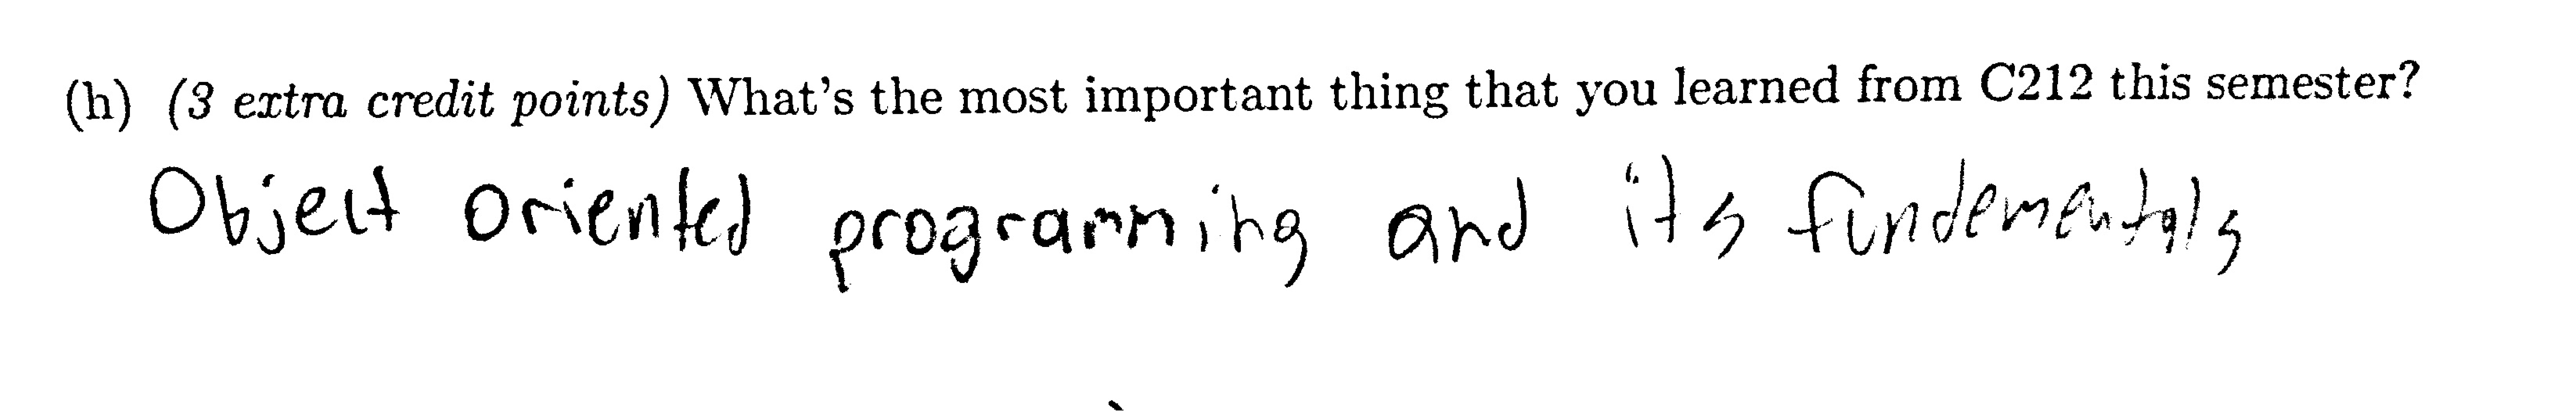 (h) (3 extra credit points) What's the most important thing that you learned from C212 this semester?
Object oriented programming and its fundementals